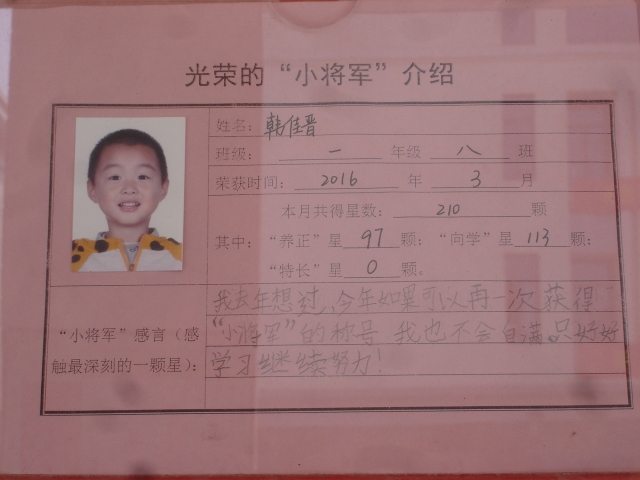 光荣的“小将军”介绍
姓名：韩佳晋
班级： 一 年级 八 班
荣获时间： 2016 年 3 月
本月共得星数： 210 颗
其中：“养正”星 97 颗；“向学”星 113 颗；
“特长”星 0 颗。
“小将军”感言（感
触最深刻的一颗星）：
我去年想过，今年如果可以再一次获得
“小将军”的称号，我也不会自满只好好
学习继续努力！